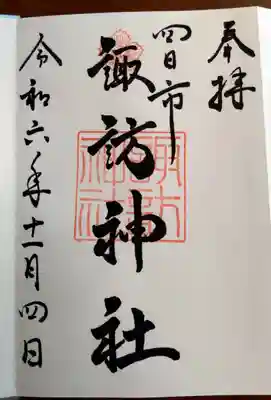 奉拝
四日市
諏訪神社
令和六年十一月四日
諏訪神社